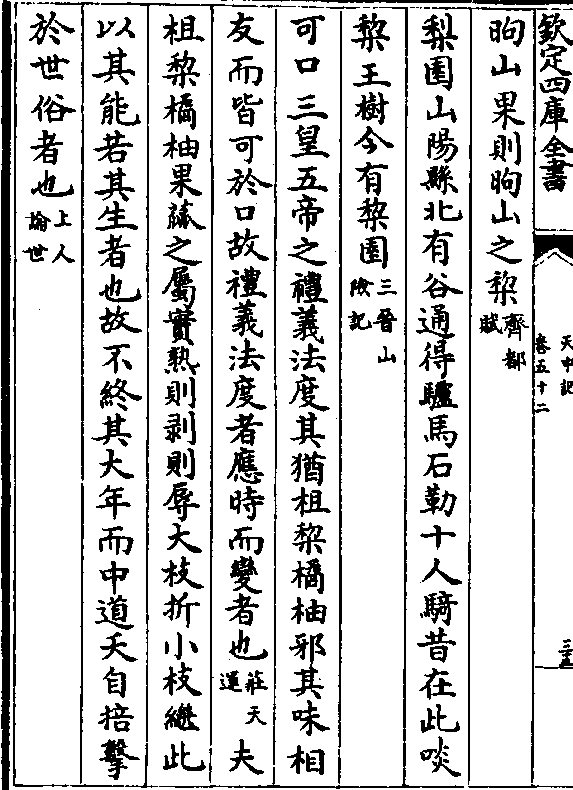 欽定四庫全書
天中記
卷五十二
昫山果則昫山之棃齊都賦
梨園山陽縣北有谷通得驢馬石勒十人騎昔在此啖
棃王樹今有棃園三晉山險記
可口三皇五帝之禮義法度其猶柤棃橘柚邪其味相
友而皆可於口故禮義法度者應時而變者也莊天運夫
柤棃橘柚果蓏之屬實熟則剥則辱大枝折小枝此
以其能若其生者也故不終其大年而中道夭自掊擊
於世俗者也上人論世